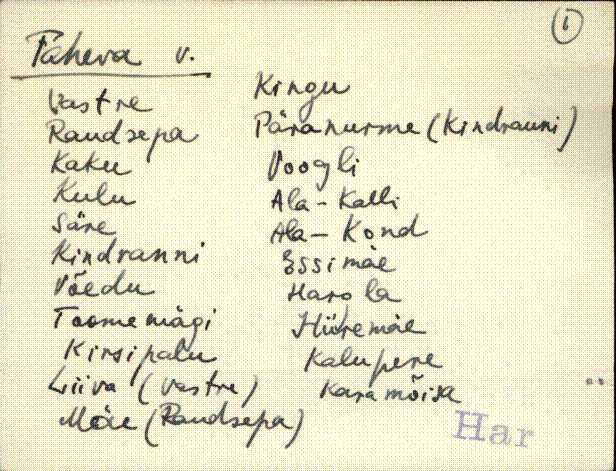 1
Taheva v.
Vastre
Raudsepa
Kaku
Kulu
Säre
Kindranni
Võedu
Toomemägi
Kirsipalu
Liiva (Vastre)
Mäe (Raudsepa)
Kingu
Päranurme (Kindrauni)
Voogli
Ala-Kalli
Ala-Kond
Essimäe
Harola
Hüremäe
Kalupere
Karamõisa
Har